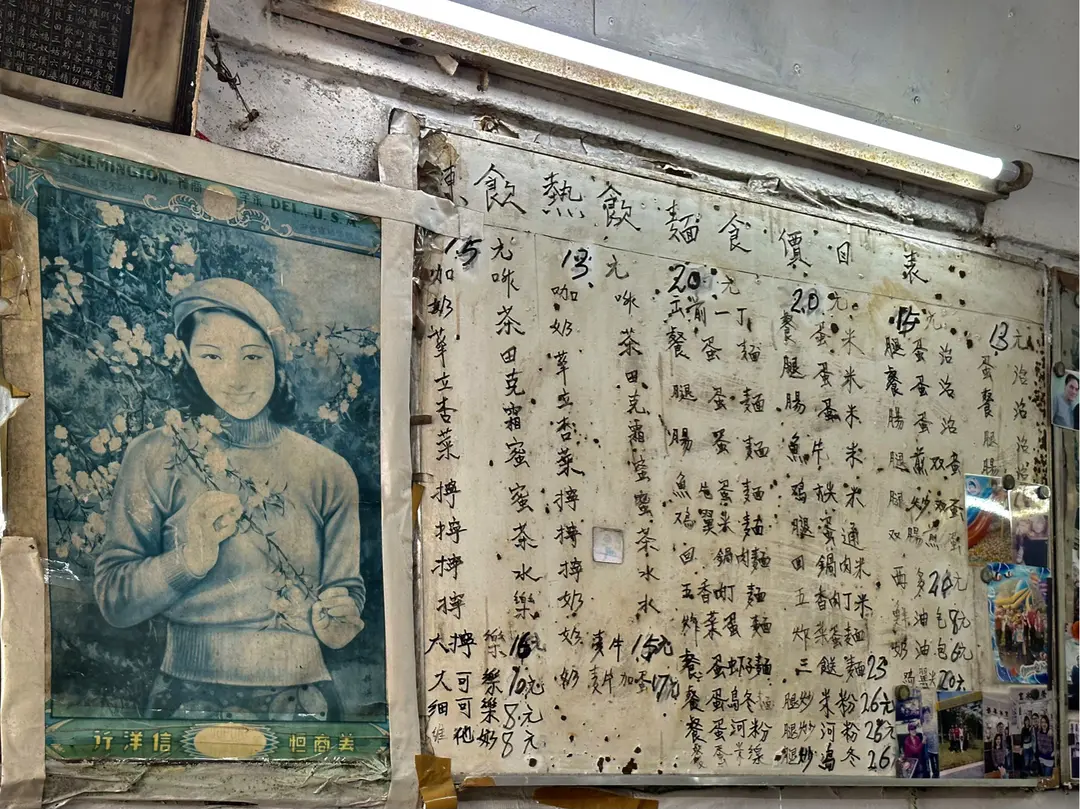 WILMINGTON, DEL., U.S.A.
行洋信 恒商美
凍飲熱飲麵食價目表
15元
咖啡
奶茶
華田
立克
杏霜
菜蜜
檸蜜
檸茶
檸水
檸樂
大檸樂16元
大可樂10元
細可樂8元
維他奶8元
13元
咖啡
奶茶
華田
立克
杏霜
菜蜜
檸蜜
檸茶
檸水
奶水
15元
17元
20元
前一丁
餐蛋麵
腿蛋麵
腸蛋麵
魚蛋麵
雞翼麵
回鍋肉麵
五香肉丁麵
炸菜蛋麵
餐蛋蝦子麵
餐蛋烏冬麵
餐蛋河粉
餐蛋米線
20元
餐蛋米
腿蛋米
腸蛋米
魚牛米
雞米
腿蛋通
回鍋肉米
五香肉丁米
炸菜蛋麵
三餸麵23
腿炒米粉26元
腿炒河粉26元
腿炒烏冬26
15元
腿蛋治
餐蛋治
腸蛋治
腿煎双蛋
腿炒双蛋
双腸煎蛋
24元
油包8元
奶油包6元
雞翼米20元
13元
蛋治
餐治
腿治
腸治